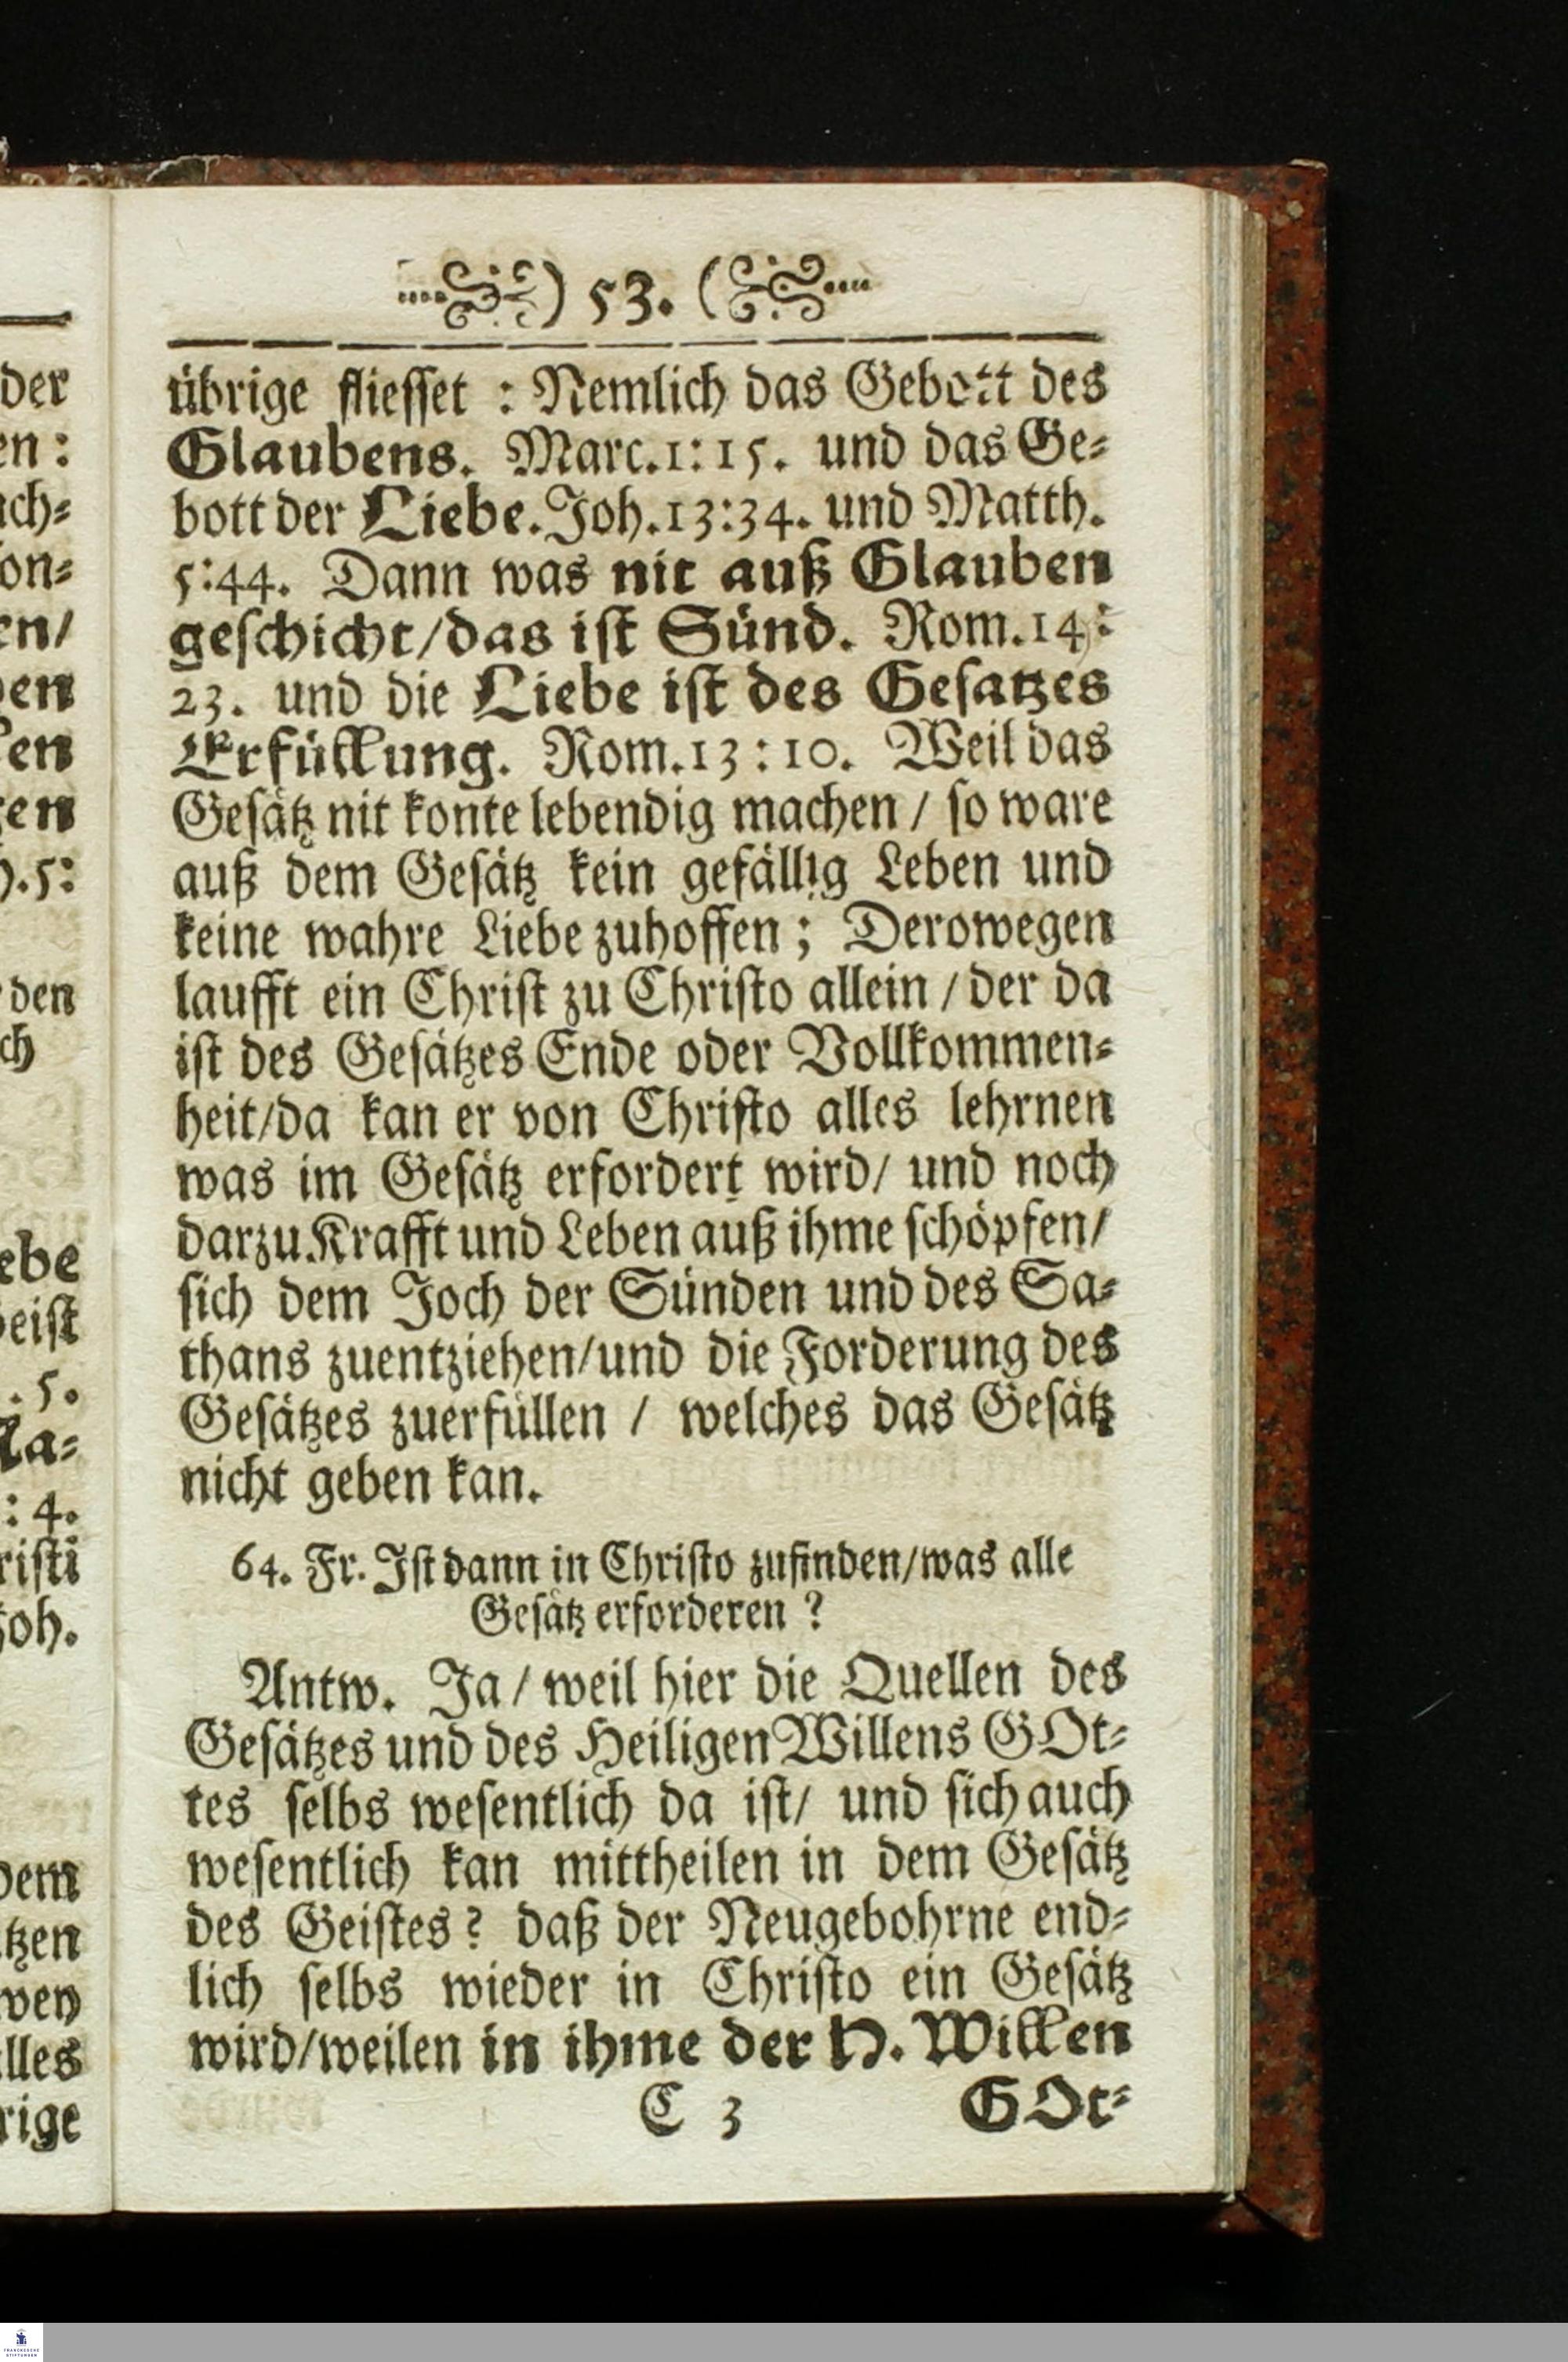 ) 53. (
übrige flieſſet : Nemlich das Gebott des
Glaubens. Marc.1:15. und das Ge⸗
bott der Liebe. Joh.13:34. und Matth.
5:44. Dann was nit auß Glauben
geſchicht/das iſt Sünd. Rom.14:
23. und die Liebe iſt des Geſatzes
Erfüllung. Rom.13:10. Weil das
Geſätz nit konte lebendig machen / ſo ware
auß dem Geſätz kein gefällig Leben und
keine wahre Liebe zuhoffen; Derowegen
laufft ein Chriſt zu Chriſto allein / der da
iſt des Geſätzes Ende oder Vollkommen⸗
heit/da kan er von Chriſto alles lehrnen
was im Geſätz erfordert wird/ und noch
darzu Krafft und Leben auß ihme ſchöpfen/
ſich dem Joch der Sünden und des Sa⸗
thans zuentziehen/und die Forderung des
Geſätzes zuerfüllen / welches das Geſätz
nicht geben kan.
64. Fr. Iſt dann in Chriſto zufinden/was alle
Geſätz erforderen ?
Antw. Ja / weil hier die Quellen des
Geſätzes und des Heiligen Willens GOt⸗
tes ſelbs weſentlich da iſt/ und ſich auch
weſentlich kan mittheilen in dem Geſätz
des Geiſtes? daß der Neugebohrne end⸗
lich ſelbs wieder in Chriſto ein Geſätz
wird/weilen in ihme der H. Willen
C 3 GOt⸗